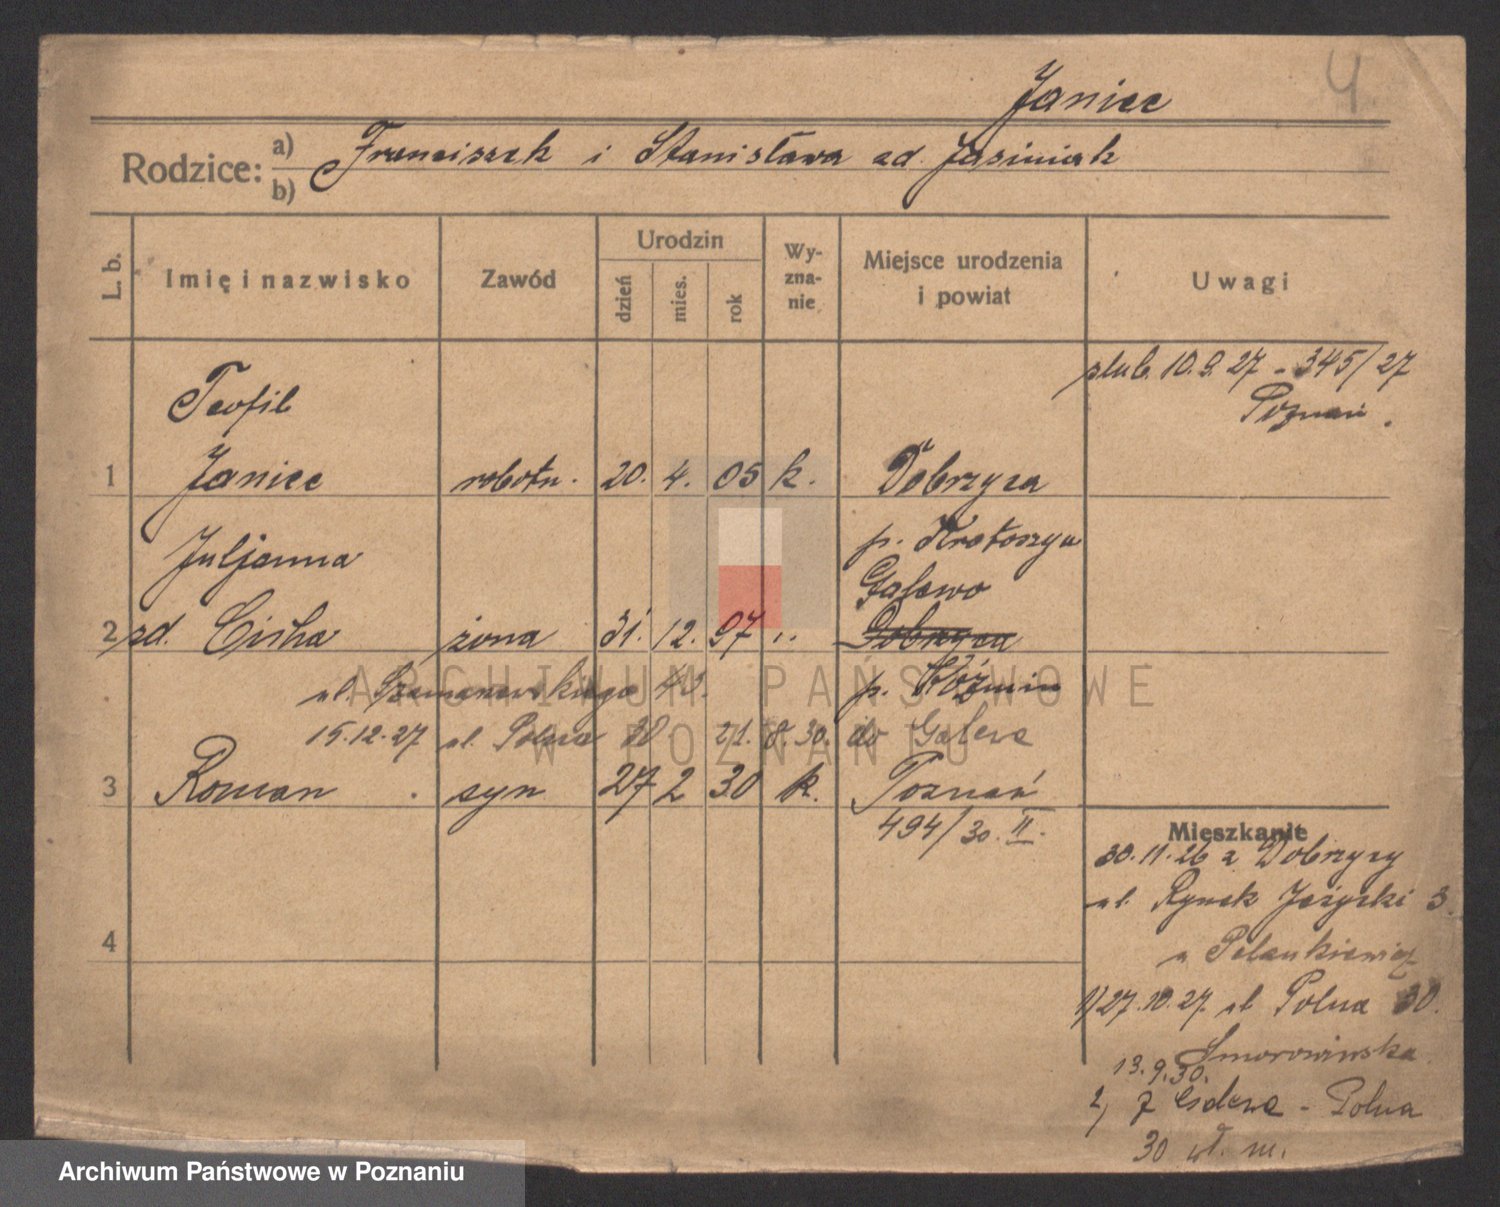 Janiec
4
Rodzice: a) b) Franciszek i Stanisława zd. Jasiniak
L. b.
Imię i nazwisko
Zawód
Urodzin
dzień
mies.
rok
Wy-
zna-
nie
Miejsce urodzenia
i powiat
Uwagi
ślub. 10.9.27 - 345/27
Poznań.
Teofil
1 Janiec robotn. 20. 4. 05 k. Dobrzyca
p. Krotoszyn
Juljanna
Galewo
2 zd. Cicha żona 31. 12. 97 ". Dobrzyca
ul. Szamarzewskiego 43. p. Koźmin
15.12.27 ul. Polna 30 21. 8. 30. do
3 Roman syn 27 2 30 k. Poznań
494/30. II.
4
Mieszkanie
30.11.26 z Dobrzycy
ul. Rynek Jeżycki 3
u
1) 27.10.27. ul Polna 30.
Smorowińska
13.9.30.
2) z - Polna
30 wł. m.
ARCHIWUM PAŃSTWOWE
W POZNANIU
Archiwum Państwowe w Poznaniu